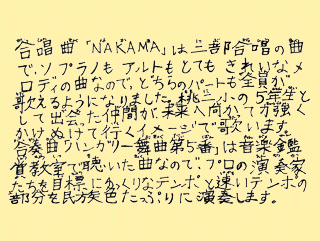 合唱曲「NAKAMA」は三部合唱の曲
で、ソプラノも アルトもとてもきれいなメ
ロディの曲なので、どちらのパートも全員が
歌えるようになりました。桃三小の5年生と
して出会った仲間が、未来へ向かって力強く
かけぬけて行くイメージで歌います。
合奏曲「ハンガリー舞曲第5番」は音楽鑑
賞教室で聴いた曲なので、プロの演奏家
たちを目標にゆっくりなテンポと速いテンポの
部分を民族色たっぷりに演奏します。